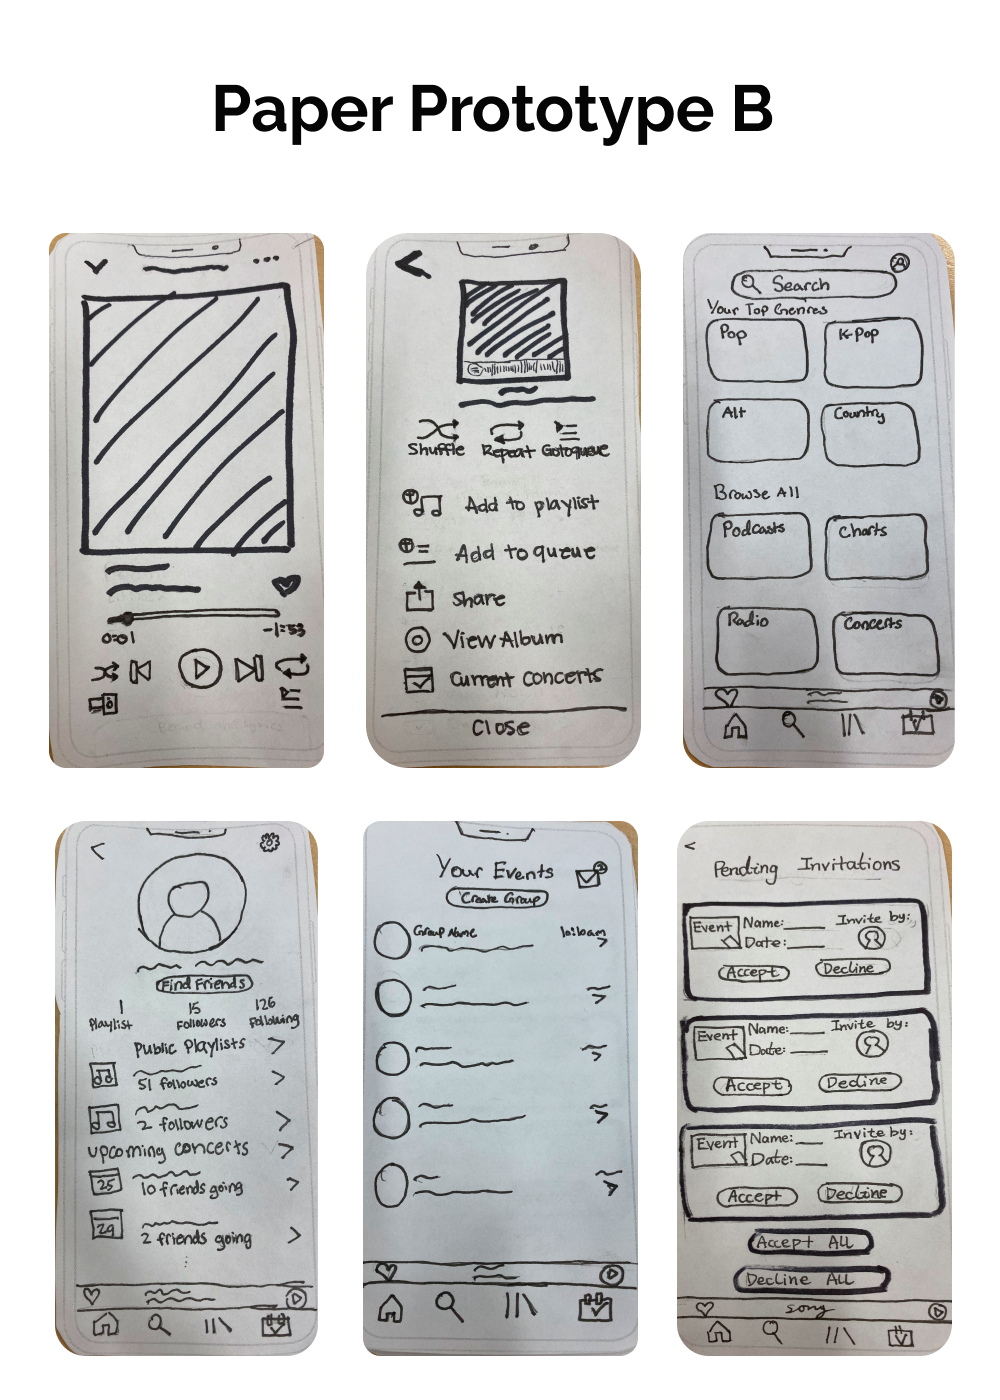 Paper Prototype B
0:01
-1:53
Shuffle Repeat Go to queue
Add to playlist
Add to queue
Share
View Album
Current Concerts
Close
Search
Your Top Genres
Pop
K-Pop
Alt
Country
Browse All
Podcasts
Charts
Radio
Concerts
Find Friends
1 15 126
Playlist Followers Following
Public Playlists
51 followers
2 followers
upcoming concerts
25
10 friends going
29
2 friends going
Your Events
2
Create Group
Group Name 10:10am
Pending Invitations
Event
Name: Invite by:
Date:
Accept Decline
Event
Name: Invite by:
Date:
Accept Decline
Event
Name: Invite by:
Date:
Accept Decline
Accept All
Decline All
song